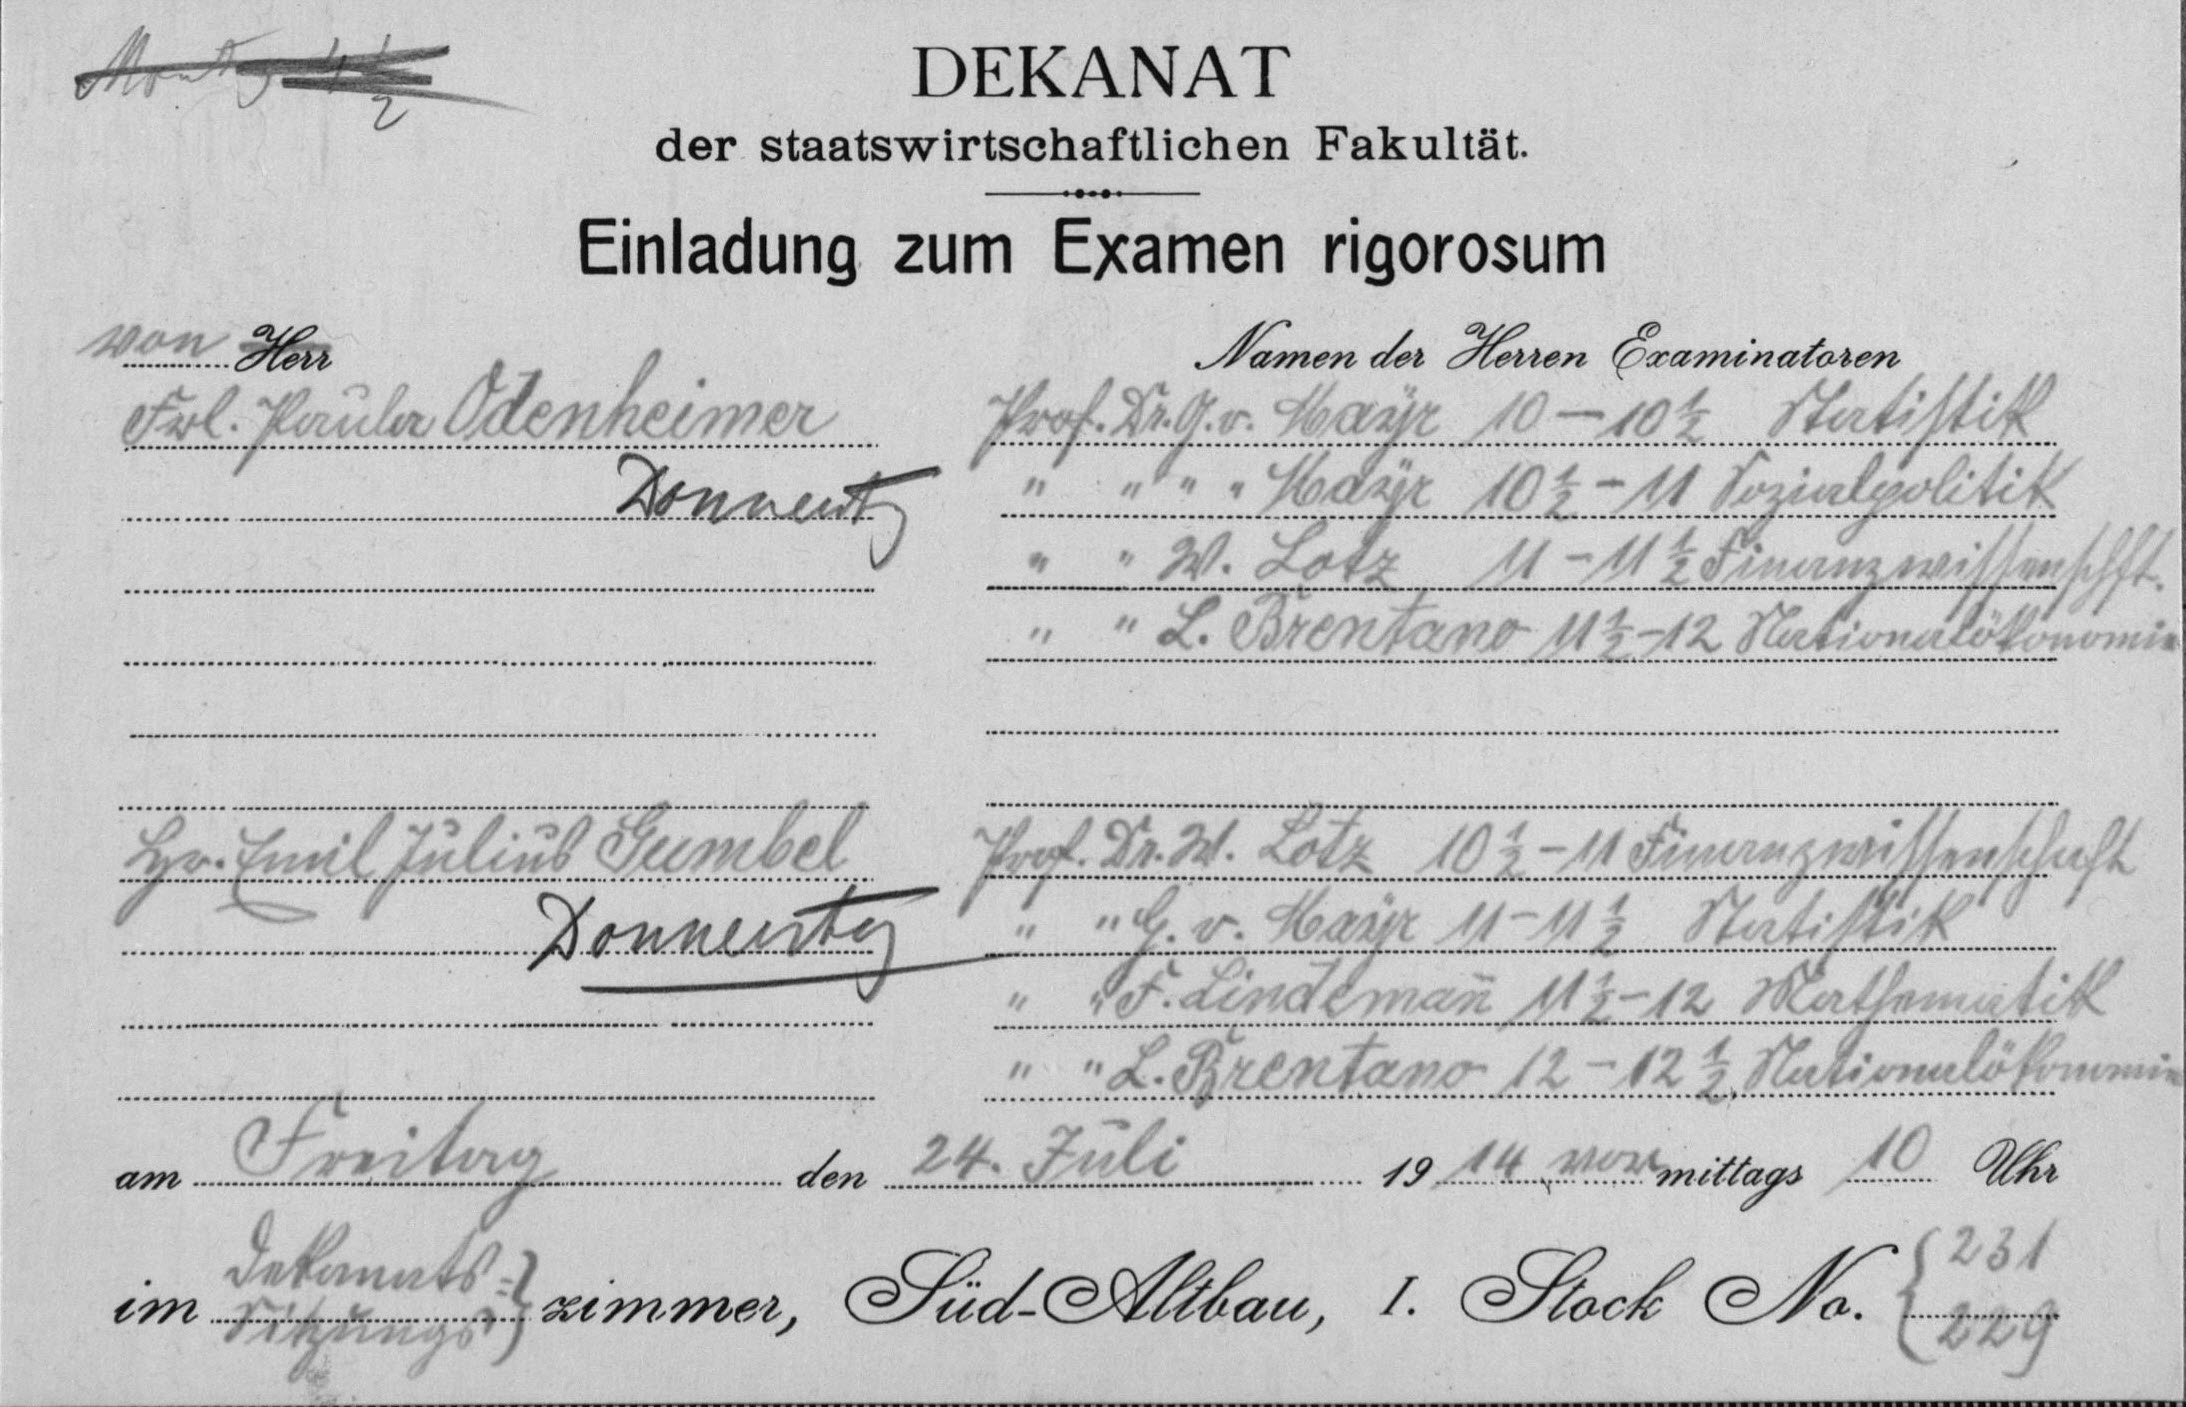 Montag 4 1/2
DEKANAT
der staatswirtschaftlichen Fakultät.
Einladung zum Examen rigorosum
von Herr
Namen der Herren Examinatoren
Frl. Paula Odenheimer
Prof. Dr. G. v. Mayr 10 – 10 1/2 Statistik
Donnerstg
" " " " Mayr 10 1/2 – 11 Sozialpolitik
" " W. Lotz 11 – 11 1/2 Finanzwissenschft.
" " L. Brentano 11 1/2 – 12 Nationalökonomie
Hr. Emil Julius Gumbel
Prof. Dr. W. Lotz 10 1/2 – 11 Finanzwissenschaft
Donnerstg
" " G. v. Mayr 11 – 11 1/2 Statistik
" " F. Lindeman̄ 11 1/2 – 12 Mathematik
" " L. Brentano 12 – 12 1/2 Nationalökonomie
am Freitag den 24. Juli 1914 vormittags 10 Uhr
im Dekanats- Sitzungs- } zimmer, Süd-Altbau, I. Stock No. { 231 229